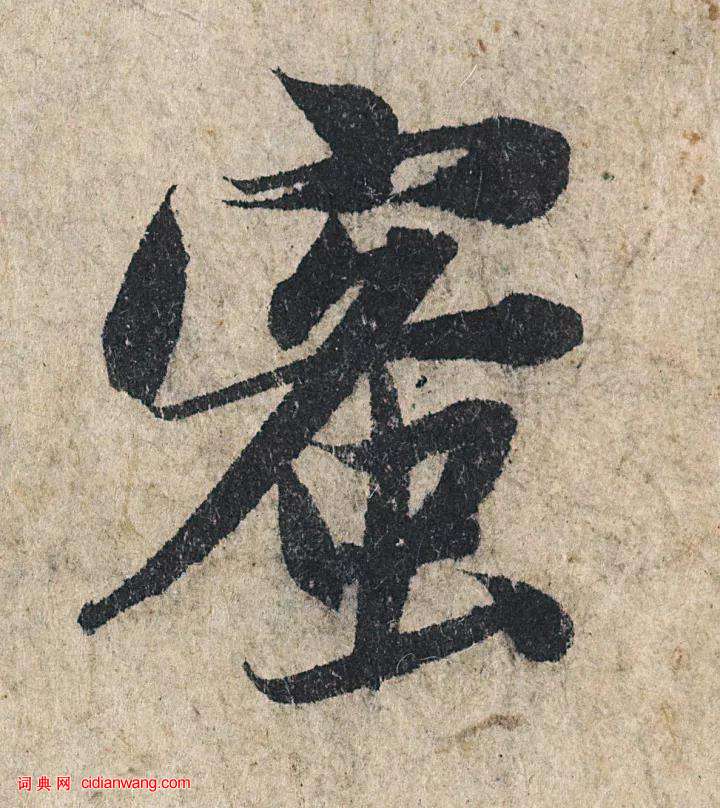 蜜
词典网 cidianwang.com